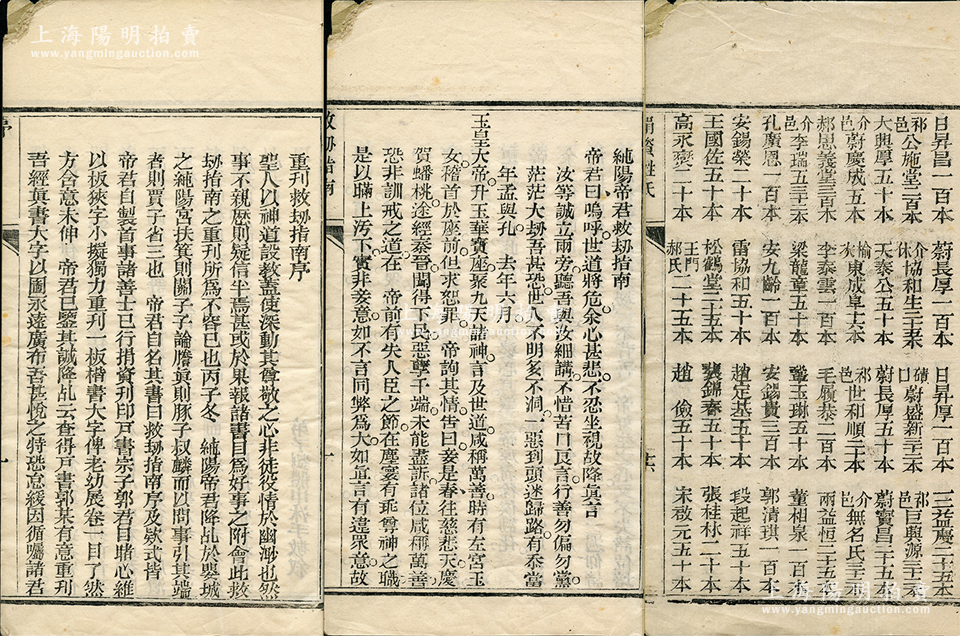 上海陽明拍賣
www.yangmingauction.com
重刊救刼指南序
聖人以神道設教蓋使深動其尊敬之心非徒役情於幽渺也然
事不親歷則疑信半焉甚或於果報諸書目為好事之附會此救
刼指南之重刊所為不容已也丙子冬　純陽帝君降乩於嬰城
之純陽宮扶箕則關子子論謄真則豚子叔麟而以問事引其端
者則賈子省三也　帝君自名其書曰救刼指南序及欵式皆
帝君自製首事諸善士已行捐資刊印戶書崇子郭君目睹心維
以板狹字小擬獨力重刊一板楷書大字俾老幼展卷一目了然
方含意未伸　帝君已鑒其誠降乩云查得戶書郭某有意重刊
吾經真書大字以圖永遠廣布吾甚悅之特恐怠緩因循囑諸君
純陽帝君救刼指南
帝君曰嗚呼世道將危余心甚悲不忍坐視故降真言
汝等誠立兩旁聽吾與汝細講不惜苦口良言行善勿偏勿黨
茫茫大刼吾甚恐世人不明多不洞一惡到頭迷歸路有忝當
年孟與孔　去年六月
玉皇大帝升玉華寶座聚九天諸神言及世道咸稱萬善時有左宮玉
女稽首於座前但求恕罪　帝詢其情告曰妾是春往慈悲天慶
賀蟠桃途經秦晉聞得下民惡孽千端未能盡訴諸位咸稱萬善
恐非訓戒之道在　帝前有失人臣之節在塵寰有乖尊神之職
是以瞞上污下實非妾意如不言同弊為大如直言有違眾意故
救刼指南
日昇昌一百本　蔚長厚一百本　日昇厚一百本　三益慶二十五本
祁邑公施堂二百本　介休協和生二十本　磧口蔚盛新二十本　祁邑巨與源三十本
大興厚五十本　天泰公五十本　蔚長厚五十本　蔚寶昌二十五本
介邑蔚慶成五本　榆次東成阜十六本　祁邑世和順二十本　介邑無名氏三十本
郝思義堂二百本　李泰雲一百本　毛履恭二百本　兩益恒二十五本
介邑李瑞五三十本　梁龍章五十本　王琳五十本　董相泉一百本
孔廣恩一百本　安九齡一百本　安錫貴三百本　郭清琪一百本
安錫榮二十本　雷協和五十本　趙定基五十本　段起祥五十本
王國佐五十本　松鶴堂二十五本　裴錦春五十本　張桂林二十本
高永奕二十本　王門郝氏二十五本　趙儉五十本　宋啟元五十本
上海陽明拍賣
www.yangmingauction.com
上海陽明拍賣
www.yangmingauction.com